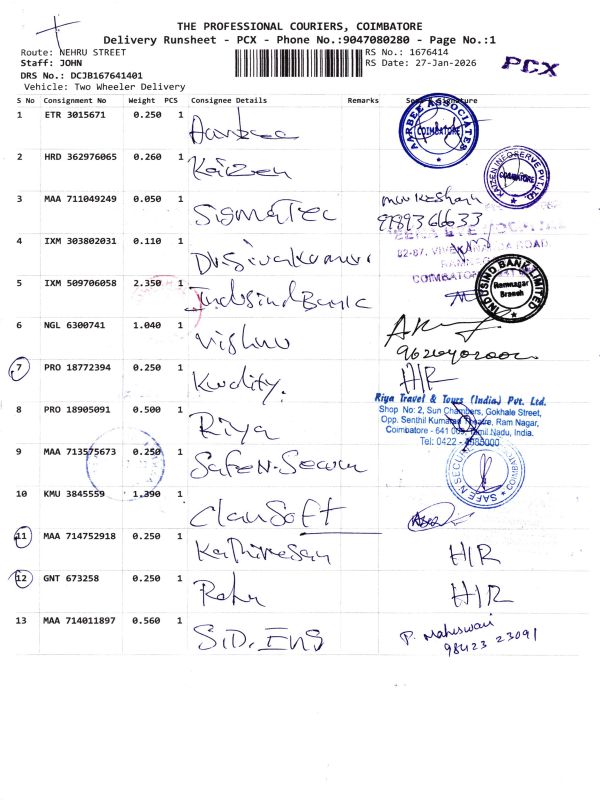 THE PROFESSIONAL COURIERS, COIMBATORE
Delivery Runsheet - PCX - Phone No.:9047080280 - Page No.:1
Route: NEHRU STREET
RS No.: 1676414
Staff: JOHN
RS Date: 27-Jan-2026
PCX
DRS No.: DCJB167641401
Vehicle: Two Wheeler Delivery
S No Consignment No Weight PCS Consignee Details Remarks Signature
1 ETR 3015671 0.250 1 Aarbee
AARBEE ASSOCIATES COIMBATORE
2 HRD 362976065 0.260 1 Kaizen
KAIZEN INFOSERVE PVT.LTD. COIMBATORE
3 MAA 711049249 0.050 1 SigmaTec
4 IXM 303802031 0.110 1 Dr.Sivakumar
5 IXM 509706058 2.350 1 Indusind Bank
INDUSIND BANK LIMITED Ramnagar Branch
6 NGL 6300741 1.040 1 Vishnu
7 PRO 18772394 0.250 1 Kwality. H/R
8 PRO 18905091 0.500 1 Riya
Riya Travel & Tours (India) Pvt. Ltd.
Shop No: 2, Sun Chambers, Gokhale Street,
Opp. Senthil Kumaran Theatre, Ram Nagar,
Coimbatore - 641 009 Tamil Nadu, India.
Tel: 0422 -
9 MAA 713575673 0.250 1 Safe N. Secure
10 KMU 3845559 1.390 1 ClanSoft
11 MAA 714752918 0.250 1 Kathiresan H/R
12 GNT 673258 0.250 1 H/R
13 MAA 714011897 0.560 1 S.D. Eng
P. Maheswari
98423 23091